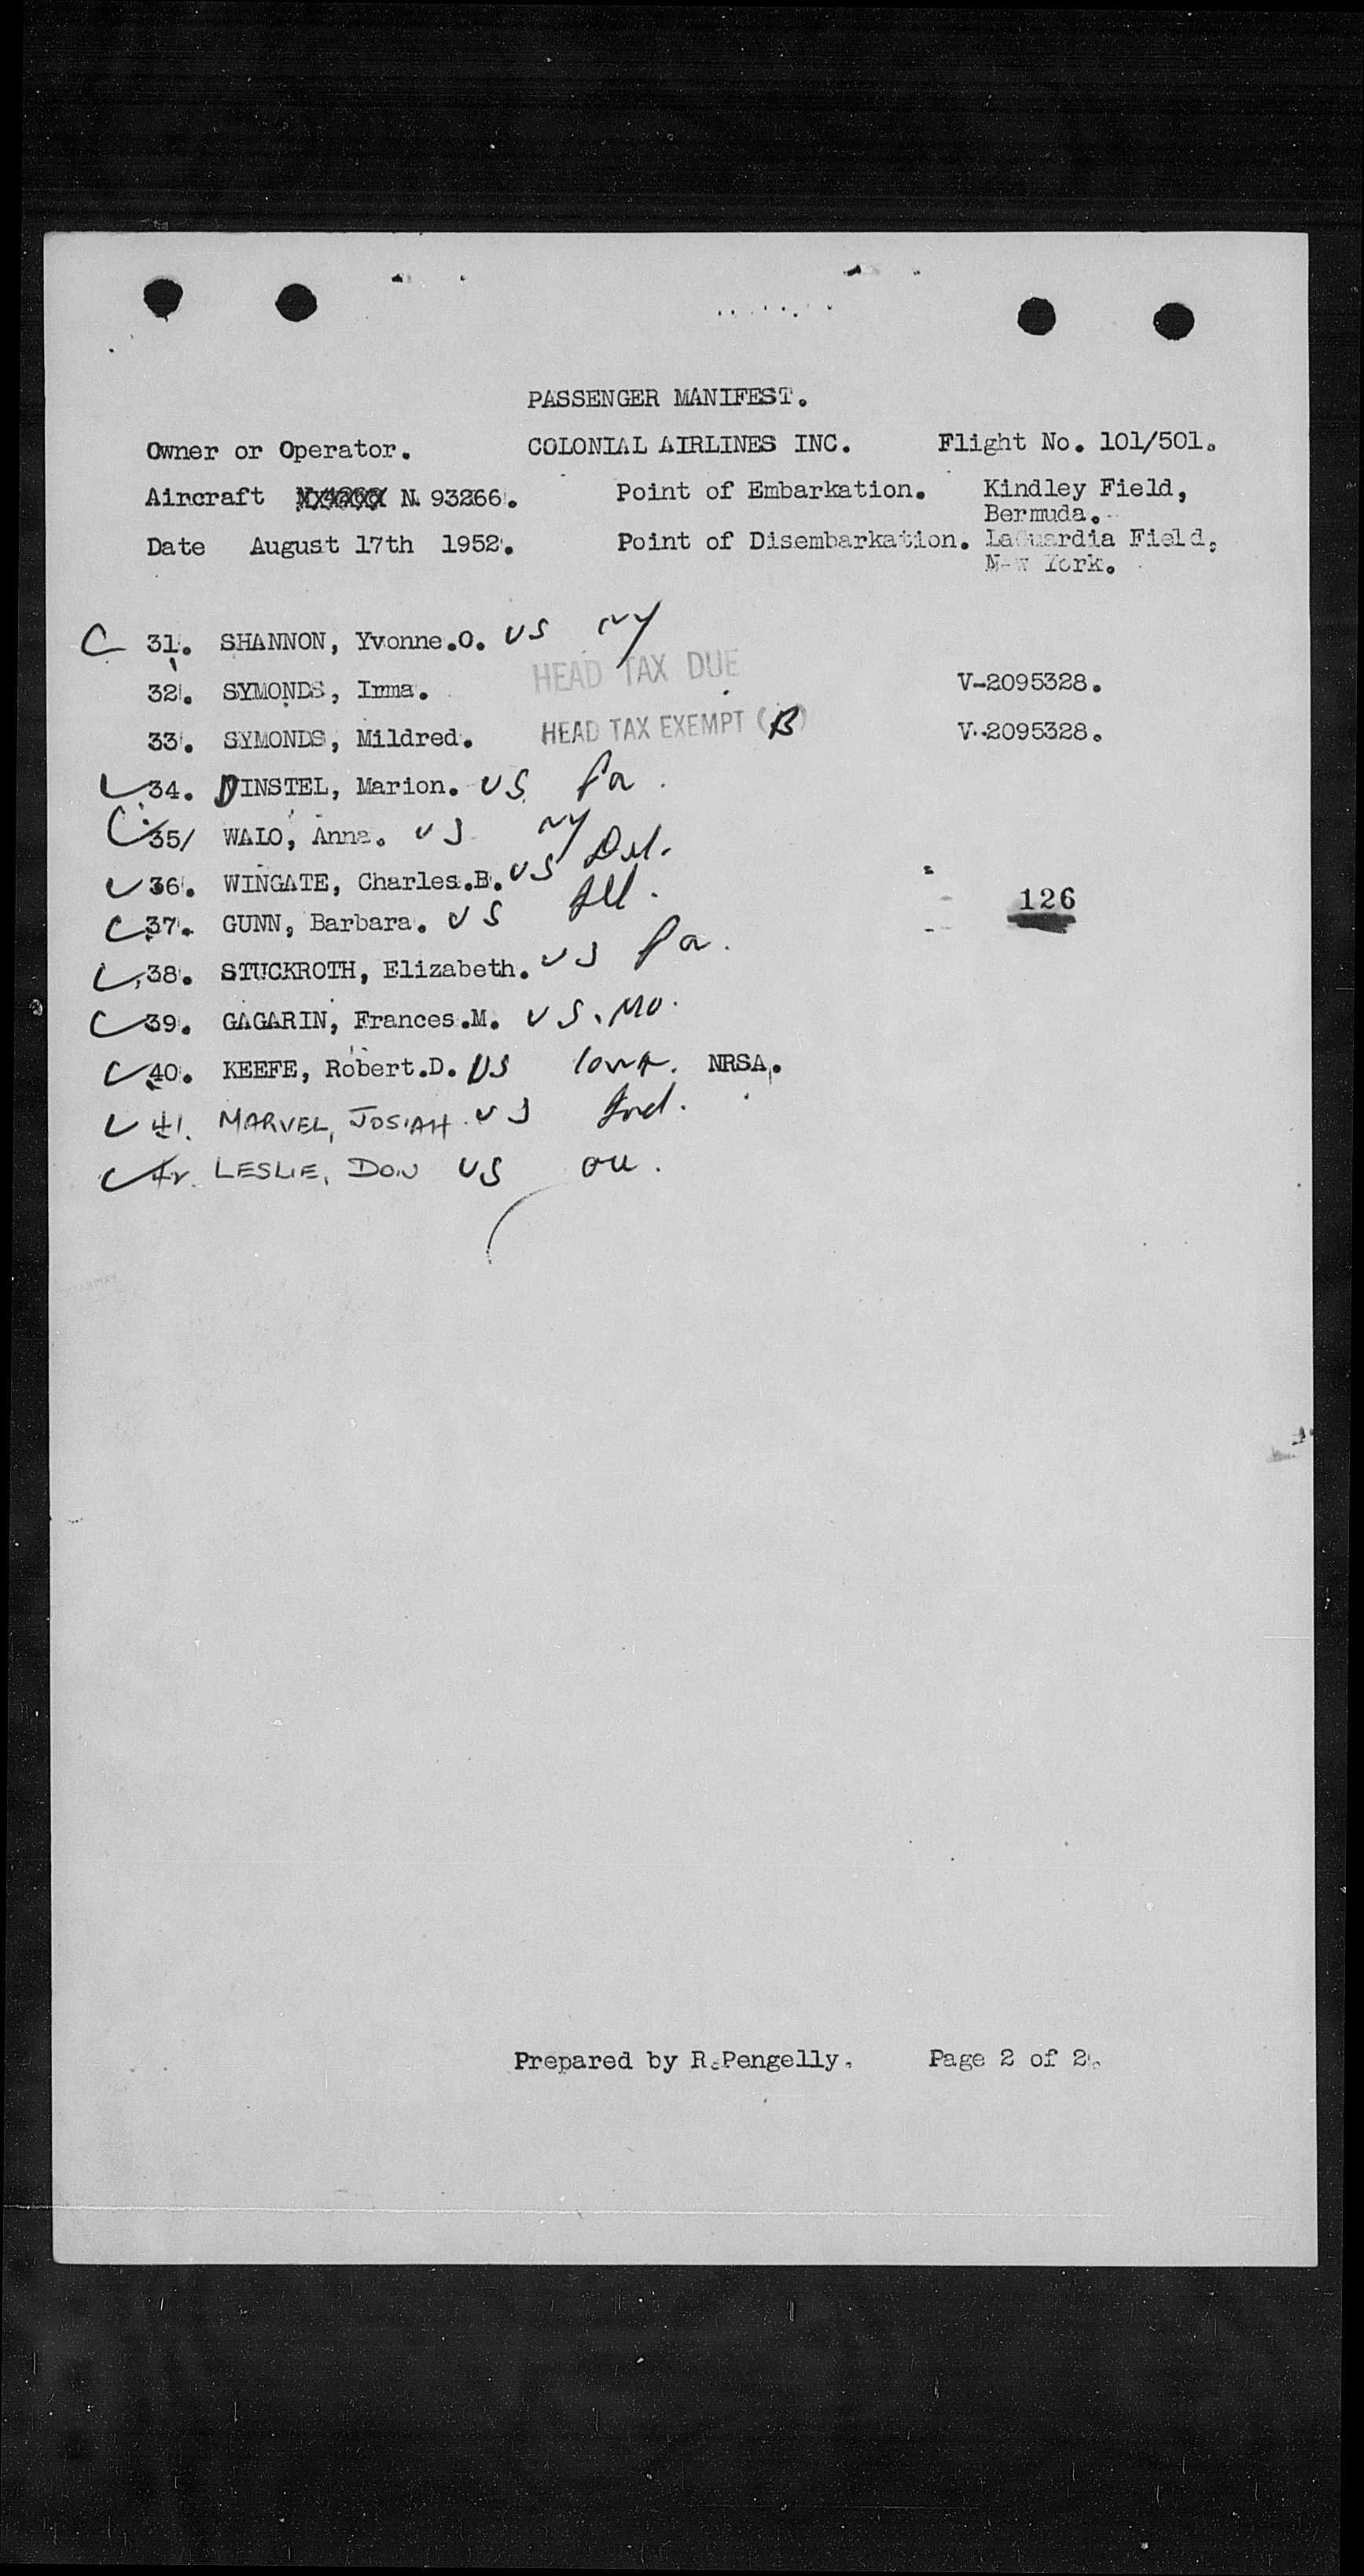 PASSENGER MANIFEST.
Owner or Operator. COLONIAL AIRLINES INC. Flight No. 101/501.
Aircraft N 93266. Point of Embarkation. Kindley Field,
Bermuda.
Date August 17th 1952. Point of Disembarkation. LaGuardia Field,
New York.
31. SHANNON, Yvonne.O. US NY
32. SYMONDS, Irma. HEAD TAX DUE V-2095328.
33. SYMONDS, Mildred. HEAD TAX EXEMPT (B) V-2095328.
34. DINSTEL, Marion. US Pa.
35/ WALO, Anna. US NY
36. WINGATE, Charles.B. US Del.
37. GUNN, Barbara. US Ill.
126
38. STUCKROTH, Elizabeth. US Pa.
39. GAGARIN, Frances.M. US. MO.
40. KEEFE, Robert.D. US Iowa. NRSA.
41. MARVEL, JOSIAH. US Ind.
42. LESLIE, DON US
Prepared by R.Pengelly. Page 2 of 2.